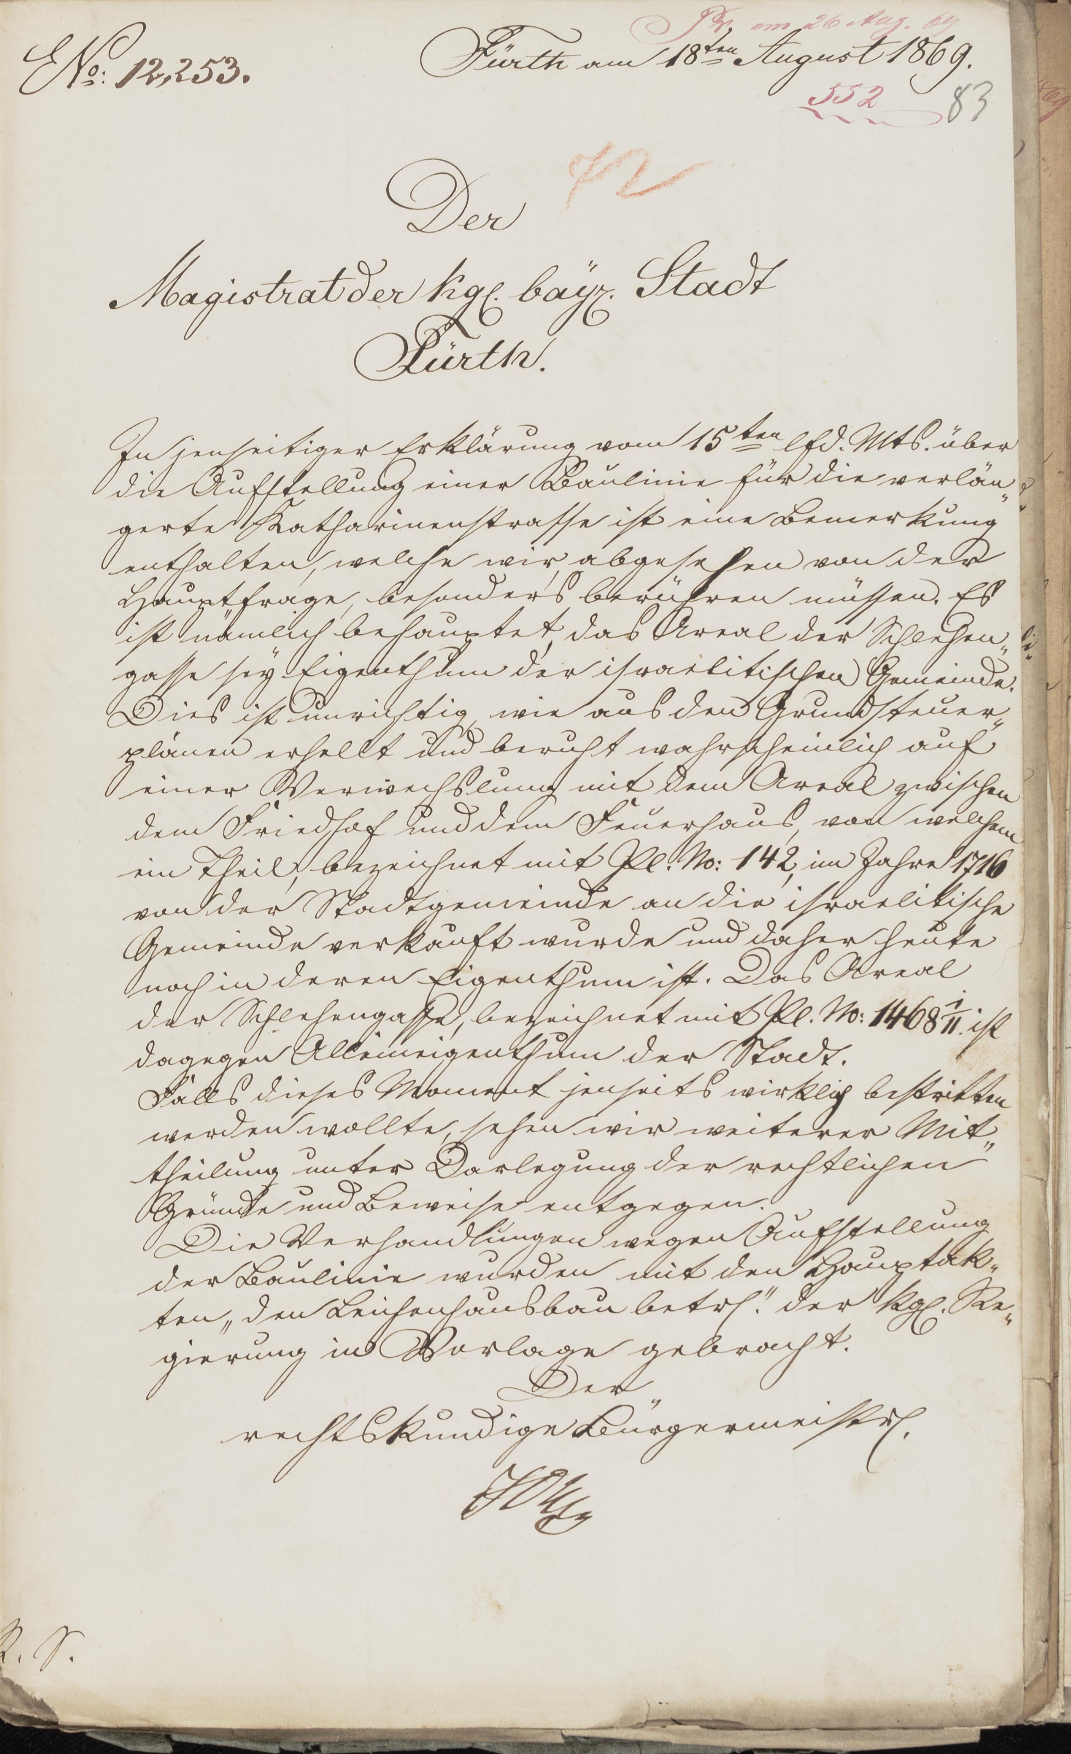 Pr. am 26 Aug. 69
ENo: 12,253.
Fürth am 18ten August 1869.
552
83
72
Der
Magistrat der kgl. bayr. Stadt
Fürth.
In jenseitiger Erklärung vom 15ten lfd. Mts. über
die Aufstellung einer Baulinie für die verlän„
gerte Katharinenstrasse ist eine Bemerkung
enthalten, welche wir, abgesehen von der
Hauptfrage, besonders berühren müssen. Es
ist nämlich behauptet, das Areal der Schlehen„
gasse sey Eigenthum der israelitischen Gemeinde.
Dies ist unrichtig, wie aus den Grundsteuer„
plänen erhellt und beruht wahrscheinlich auf
einer Verwechslung mit dem Areal zwischen
dem Friedhof und dem Feuerhaus, von welchem
ein Theil, bezeichnet mit Pl. No: 142, im Jahre 1716
von der Stadtgemeinde an die israelitische
Gemeinde verkauft wurde und daher heute
noch in deren Eigenthum ist. Das Areal
der Schlehengasse, bezeichnet mit Pl. No: 1468 1/11. ist
dagegen Alleineigenthum der Stadt.
Falls dieses Moment jenseits wirklich bestritten
werden wollte, sehen wir weiterer Mit„
theilung unter Darlegung der rechtlichen
Gründe und Beweise entgegen.
Die Verhandlungen wegen Aufstellung
der Baulinie wurden mit den Hauptak„
ten „den Leichenhausbau betrf.“ der kgl. Re„
gierung in Vorlage gebracht.
Der
rechtskundige Bürgermeister.